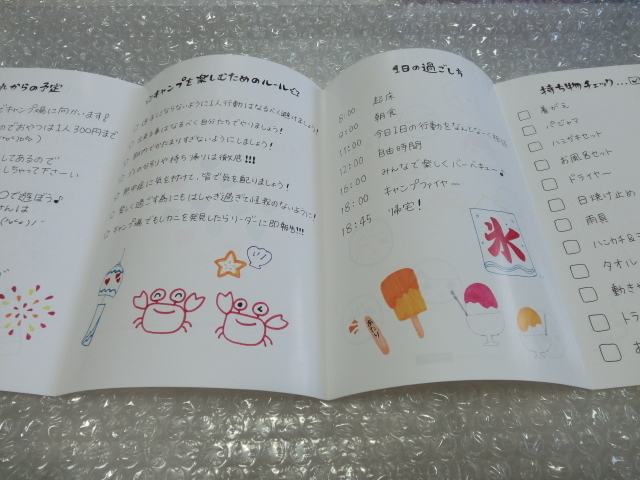 れからの予定
キャンプ場に向かいます!
のでおやつは1人300円まで
してあるので
しちゃって下さーい
〇で遊ぼう♪
さんは
☆キャンプを楽しむためのルール☆
1人行動はなるべく避けましょう!
出来る事はなるべく自分たちでやりましょう!
かたまりすぎないようにしましょう!
ゴミの分別や持ち帰りは徹底!!!
熱中症に気を付けて、皆で気を配りましょう!
楽しく過ごす為にもはしゃぎ過ぎて怪我のないように!
キャンプ場でもしカニを発見したらリーダーに即報告!!!
1日の過ごし方
8:00 起床
9:00 朝食
11:00 今日1日の行動をなんとなく
12:00 自由時間
16:00 みんなで楽しくバーベキュー♪
18:00 キャンプファイヤー
18:45 帰宅!
氷
あたり
持ち物チェック...☑
着がえ
パジャマ
ハミガキセット
お風呂セット
ドライヤー
日焼け止め
雨具
ハンカチ&
タオル
動きや
トラ
お